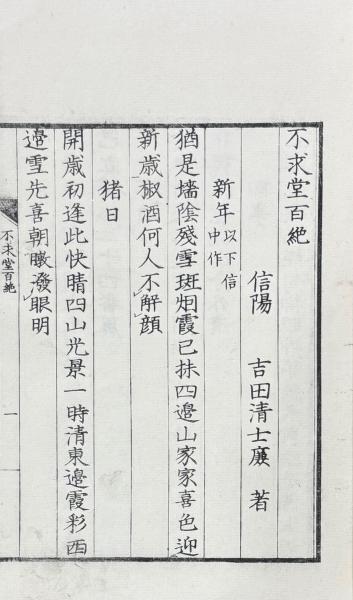 不求堂百絶
信陽 吉田清士廉 著
新年以下信中作
猶是墻陰殘雪斑烟霞已抹四邊山家家喜色迎
新歳椒酒何人不解顔
猪日
開歳初逢此快晴四山光景一時清東邊霞彩西
邊雪光喜朝暾潑眼明
不求堂百絶
一